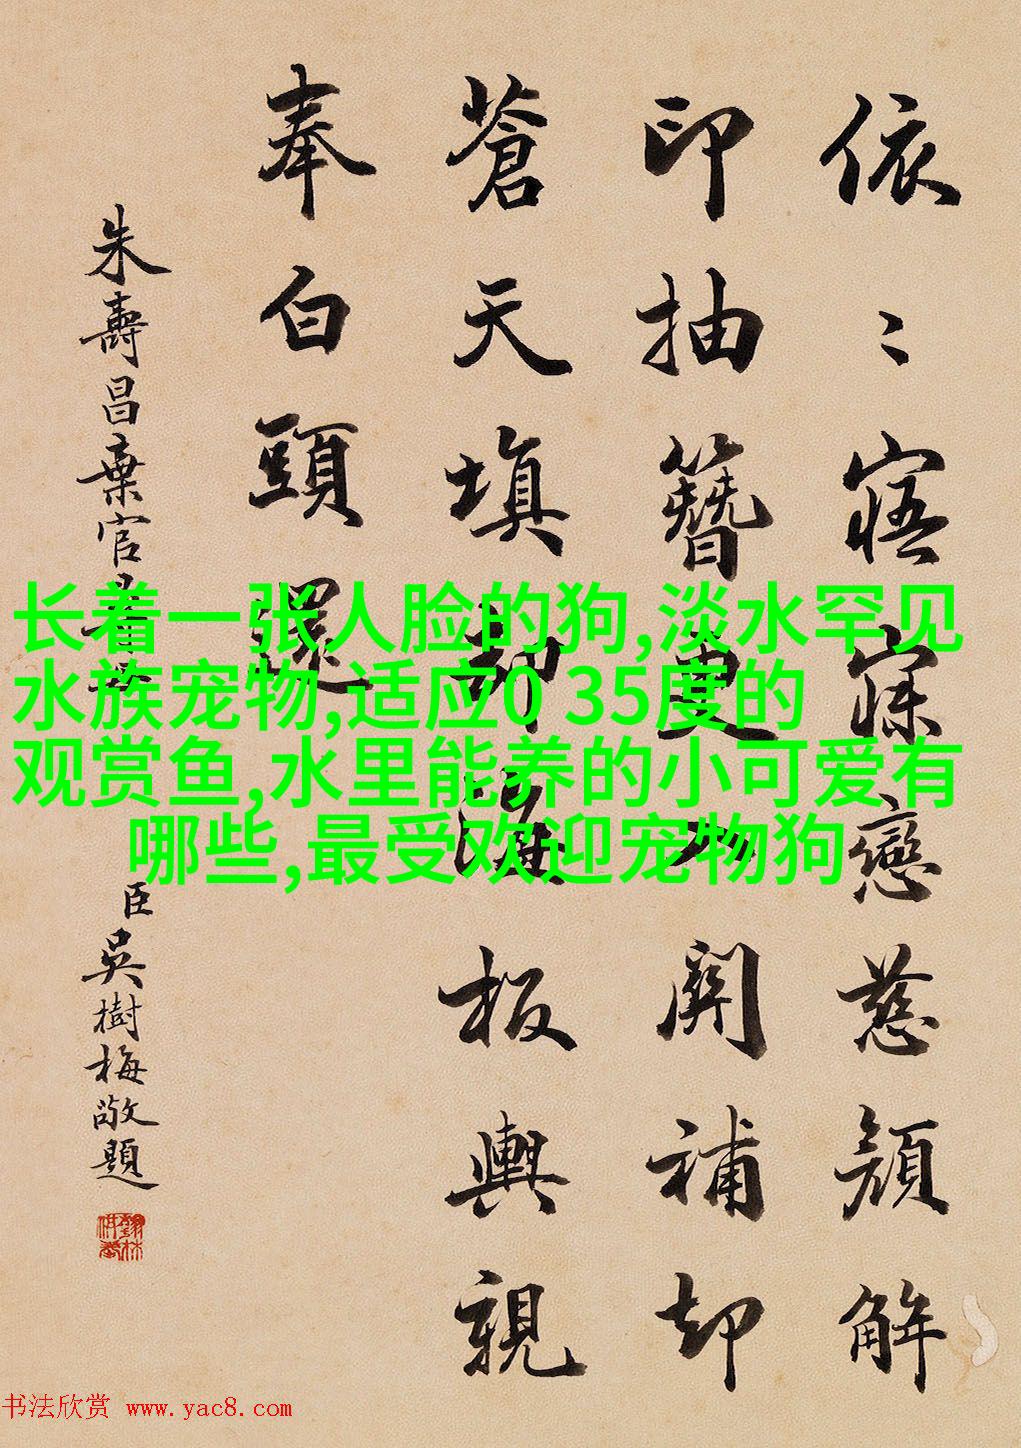 依〻寤寐戀慈顔解
印抽簪更
關補却
蒼天填
却海
板輿親
奉白頭還
朱壽昌棄官尋母
臣吳樹梅敬題
长着一张人脸的狗,淡水罕见
水族宠物,适应0 35度的
观赏鱼,水里能养的小可爱有
哪些,最受欢迎宠物狗
书法欣赏 www.yac8.com